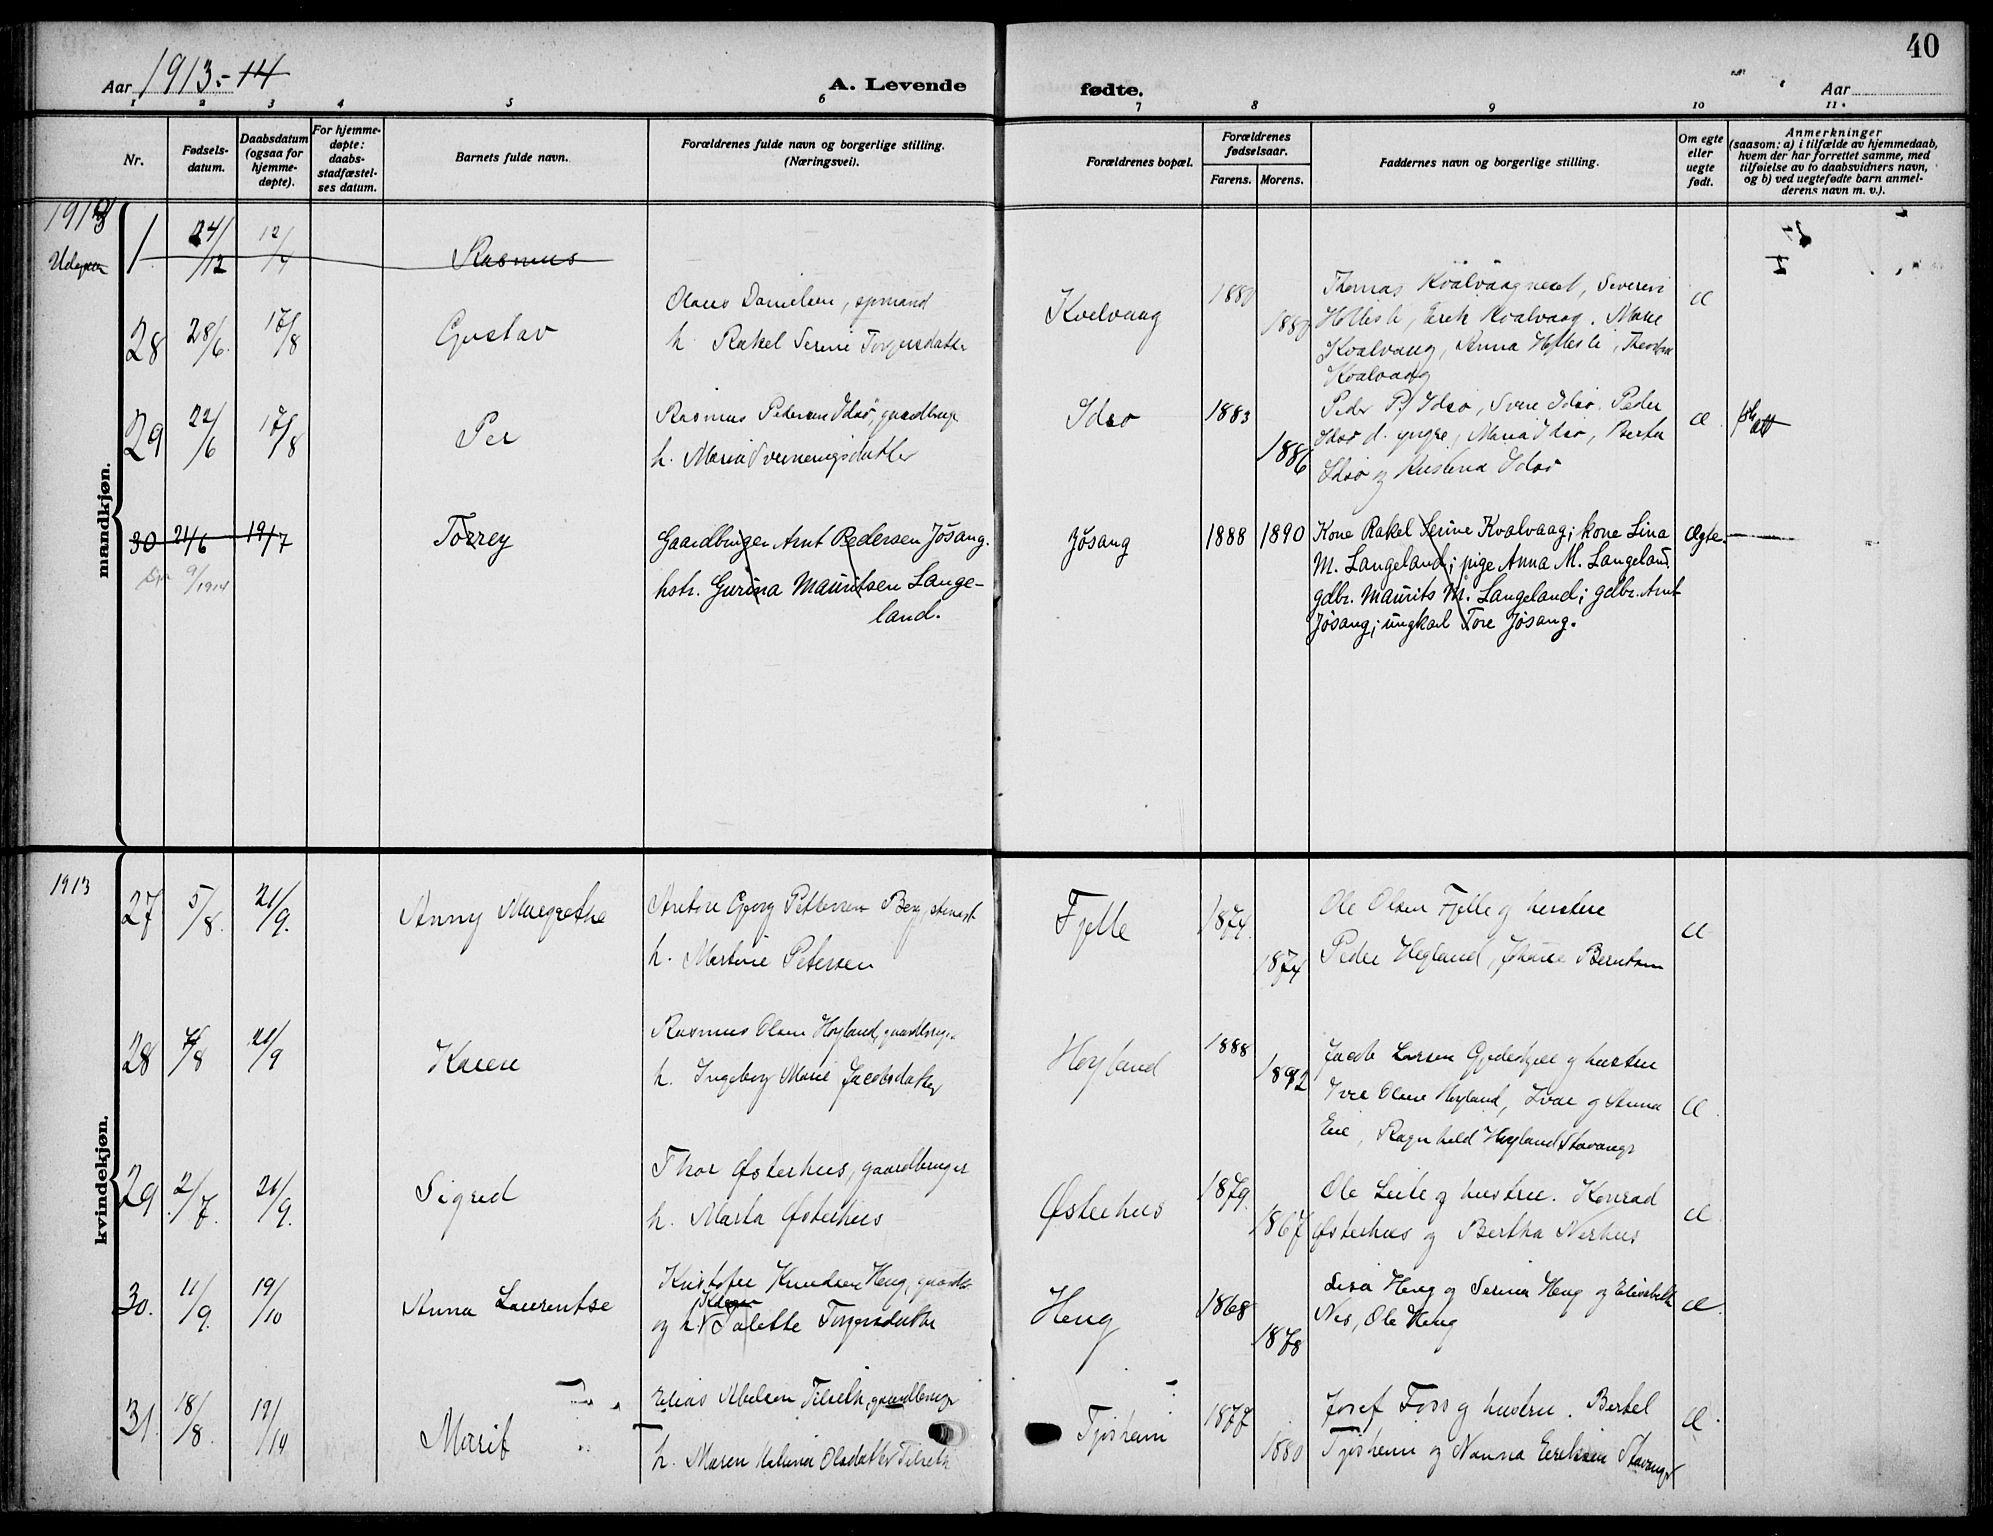 40
Aar 1913.-14
A. Levende
fødte.
Aar
1 2 3 4 5 6 7 8 9 10 11.
Nr.
Fødsels-
datum.
Daabsdatum
(ogsaa for
hjemme-
døpte).
For hjemme-
døpte:
daabs-
stadfæstel-
ses datum.
Barnets fulde navn.
Forældrenes fulde navn og borgerlige stilling.
(Næringsvei).
Forældrenes bopæl.
Forældrenes
fødselsaar.
Farens. Morens.
Faddernes navn og borgerlige stilling.
Om egte
eller
uegte
født.
Anmerkninger
(saasom: a) i tilfælde av hjemmedaab,
hvem der har forrettet samme, med
tilføielse av to daabsvidners navn,
og b) ved uegtefødte barn anmel-
derens navn m. v.).
mandkjøn.
1 24/12 Rasmus
28 28/6 17/8 Gustav
Olaus Danielsen,
h. Rakel Serine Torgersdatter
Kvelvaag
Thomas Kvalvaagneset, Severin
Helleslí, Erik Kvalvaag. Marie
Kvalvaag, Anna
Kvalvaag
29 22/6 17/8 Per
Rasmus Pedersen Idsø, gaardbruger
h. Maria
Idsø
1883
1886
Peder P. Idsø, Svein Idsø. Peder
Idsø d. yngre, Maria Idsø, Berta
Idsø og Kristena Idsø
30 21/6 19/7 Torrey
9/1914
Gaardbruger Arnt Pedersen Jøsang.
hstr. Gurina Mauritsen Lange-
land.
Jøsang
1888 1890
Kone Rakel Serine Kvalvaag; kone Lina
M. Langeland; pige Anna M. Langeland
gdbr. Maurits M. Langeland; gdbr. Arnt
Jøsang; ungkarl Tore Jøsang.
Ægte.
kvindekjøn.
1913
27 5/8. 21/9. Anny Margrethe
Georg Pettersen Berg,
h. Martine Petersen
Fjelle
1874.
1874
Ole Olsen Fjelle og hustru
Peder Høyland, Berntsen
28 21/9 Karen
Rasmus Olsen Høyland, gaardbruger
h. Ingeborg Marie Jacobsdatter
Høyland
1888
1892
Jacob Larsen og hustru
Olene Høyland, Ivar og Anna
Eie, Ragnhild Høyland Stavanger
29 2/7. 21/9. Sigrid
Thor Østerhus, gaardbruger
h. Marta Østerhus
Østerhus
1879.
1867
Ole Leite og hustru. Konrad
Østerhus og Bertha Nerhus
30. 11/9. 19/10 Anna Laurentse
Kristofer Knudsen Heng, gaardb.
og h. Talette Torgersdatter
Heng
1868
1878
Lisa Heng og Serina Heng og Elisabeth
Nes, Ole Heng
31. 18/8. 19/10 Marit
Elias Abelsen gaardbruger
h. Maren Olsdatter
Tjøsheim
1877
1880
Josef Foss og hustru. Bertel
Tjøsheim og Nanna Eriksen Stavanger